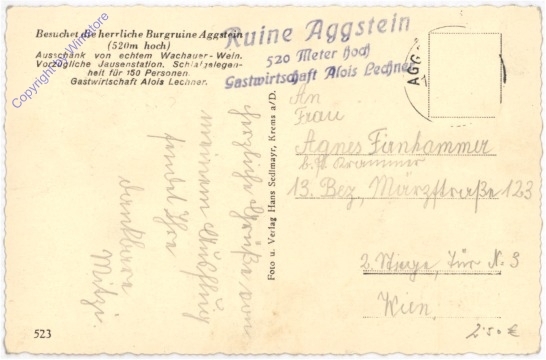 Besuchet die herrliche Burgruine Aggstein
(520m hoch)
Ausschank von echtem Wachauer-Wein.
Vorzügliche Jausenstation, Schlafgelegen-
heit für 150 Personen
Gastwirtschaft Alois Lechner.
Copyright by Winstore
Ruine Aggstein
520 Meter hoch
Gastwirtschaft Alois Lechner
AGG
Herzliche Grüße von
meinem Ausflug
sendet Ihre
dankbare
Mitzi.
Foto u. Verlag Hans Sedlmayr, Krems a/D.
An
Frau
Agnes Firnhammer
b. Krammer
13. Bez, Märzstraße 123
2 Stiege, Tür N. 3
Wien.
523
2.50 €